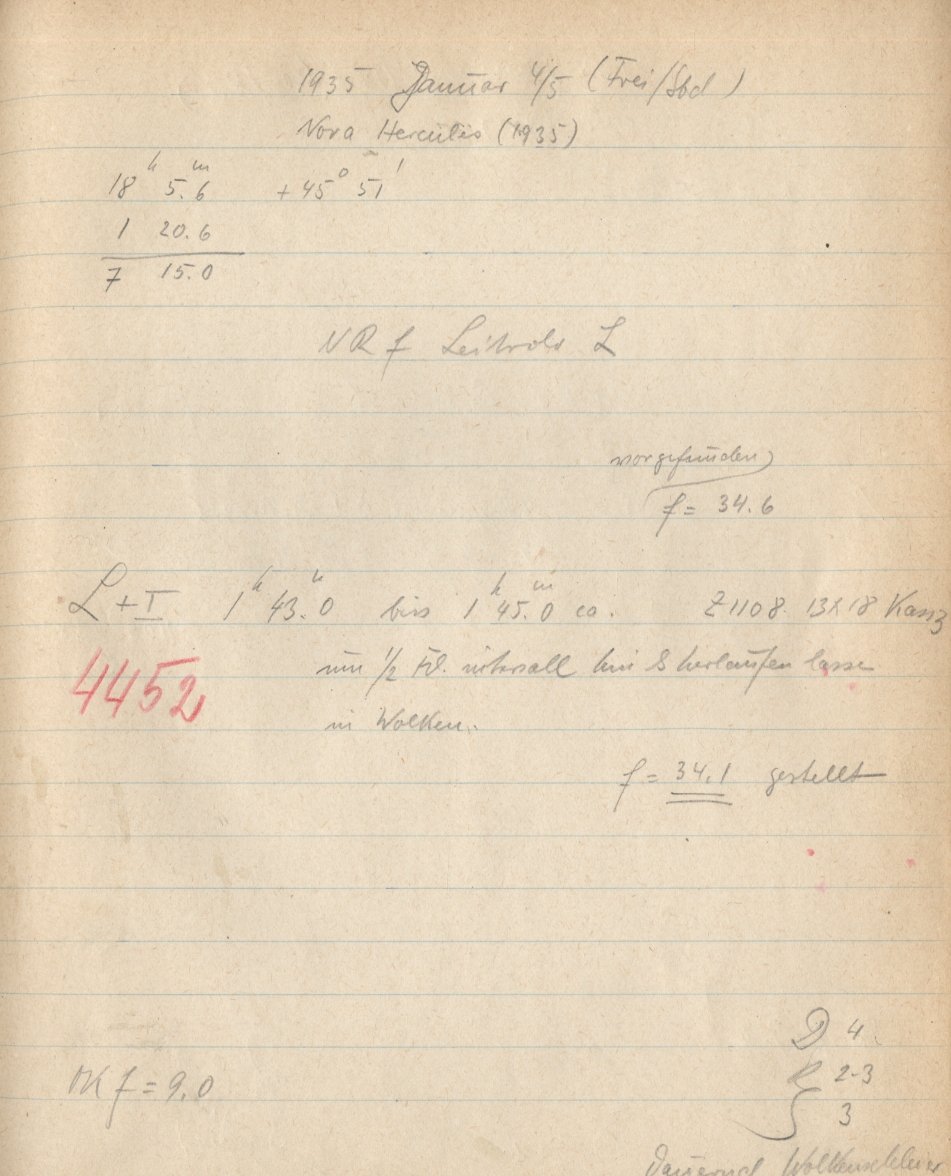 1935 Januar 4/5 (Frei/Sbd)
Nova Herculis (1935)
18h 5.6m +45° 51'
1 20.6
7 15.0
NR f Leitrohr L
vorgefunden
f = 34.6
L + I 1h 43.0 bis 1h 45.0m ca. Z1108. 13x18 Kass
4452
um 1/2 Fd. intervall laufen lassen
in Wolken.
f = 34.1 gestellt
D 4
OK f = 9.0
2-3
3
Dauernd Wolkenschleier